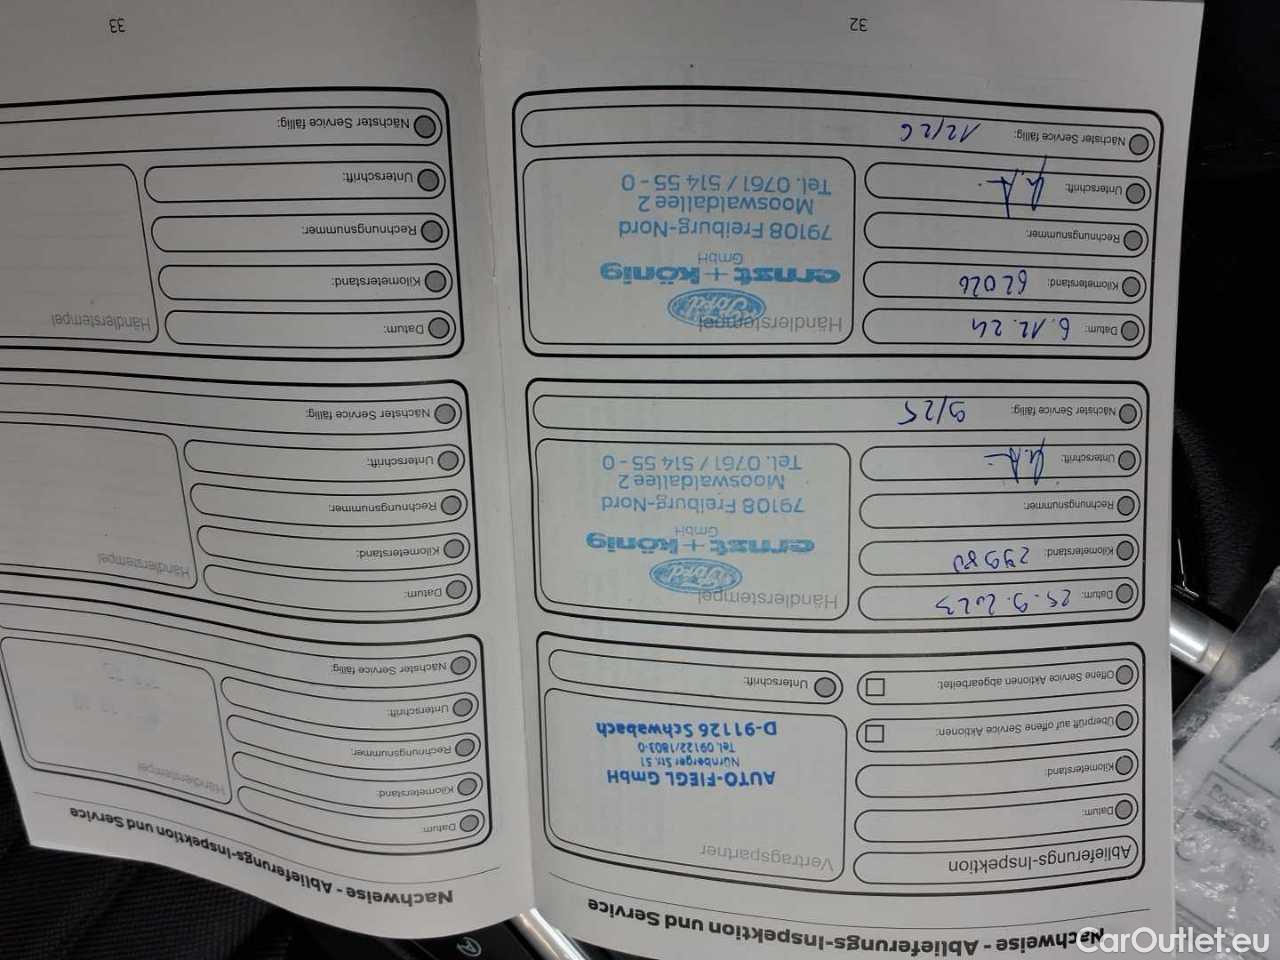 Nachweise - Ablieferungs-Inspektion und Service
Ablieferungs-Inspektion
Datum:
Kilometerstand:
Überprüft auf offene Service Aktionen:
Offene Service Aktionen abgearbeitet:
Vertragspartner
AUTO-FIEGL GmbH
Nürnberger Str. 51
Tel. 09122/1803-0
D-91126 Schwabach
Unterschrift:
Datum: 25.9.2023
Kilometerstand: 29980
Rechnungsnummer:
Unterschrift:
Händlerstempel
Ford
ernst+könig
GmbH
79108 Freiburg-Nord
Mooswaldallee 2
Tel. 0761 / 514 55 - 0
Nächster Service fällig: 9/25
Datum: 6.12.24
Kilometerstand: 62026
Rechnungsnummer:
Unterschrift:
Händlerstempel
Ford
ernst+könig
GmbH
79108 Freiburg-Nord
Mooswaldallee 2
Tel. 0761 / 514 55 - 0
Nächster Service fällig: 12/26
32
Nachweise - Ablieferungs-Inspektion und Service
Datum:
Kilometerstand:
Rechnungsnummer:
Unterschrift:
Händlerstempel
Nächster Service fällig:
Datum:
Kilometerstand:
Rechnungsnummer:
Unterschrift:
Händlerstempel
Nächster Service fällig:
Datum:
Kilometerstand:
Rechnungsnummer:
Unterschrift:
Händlerstempel
Nächster Service fällig:
33
CarOutlet.eu